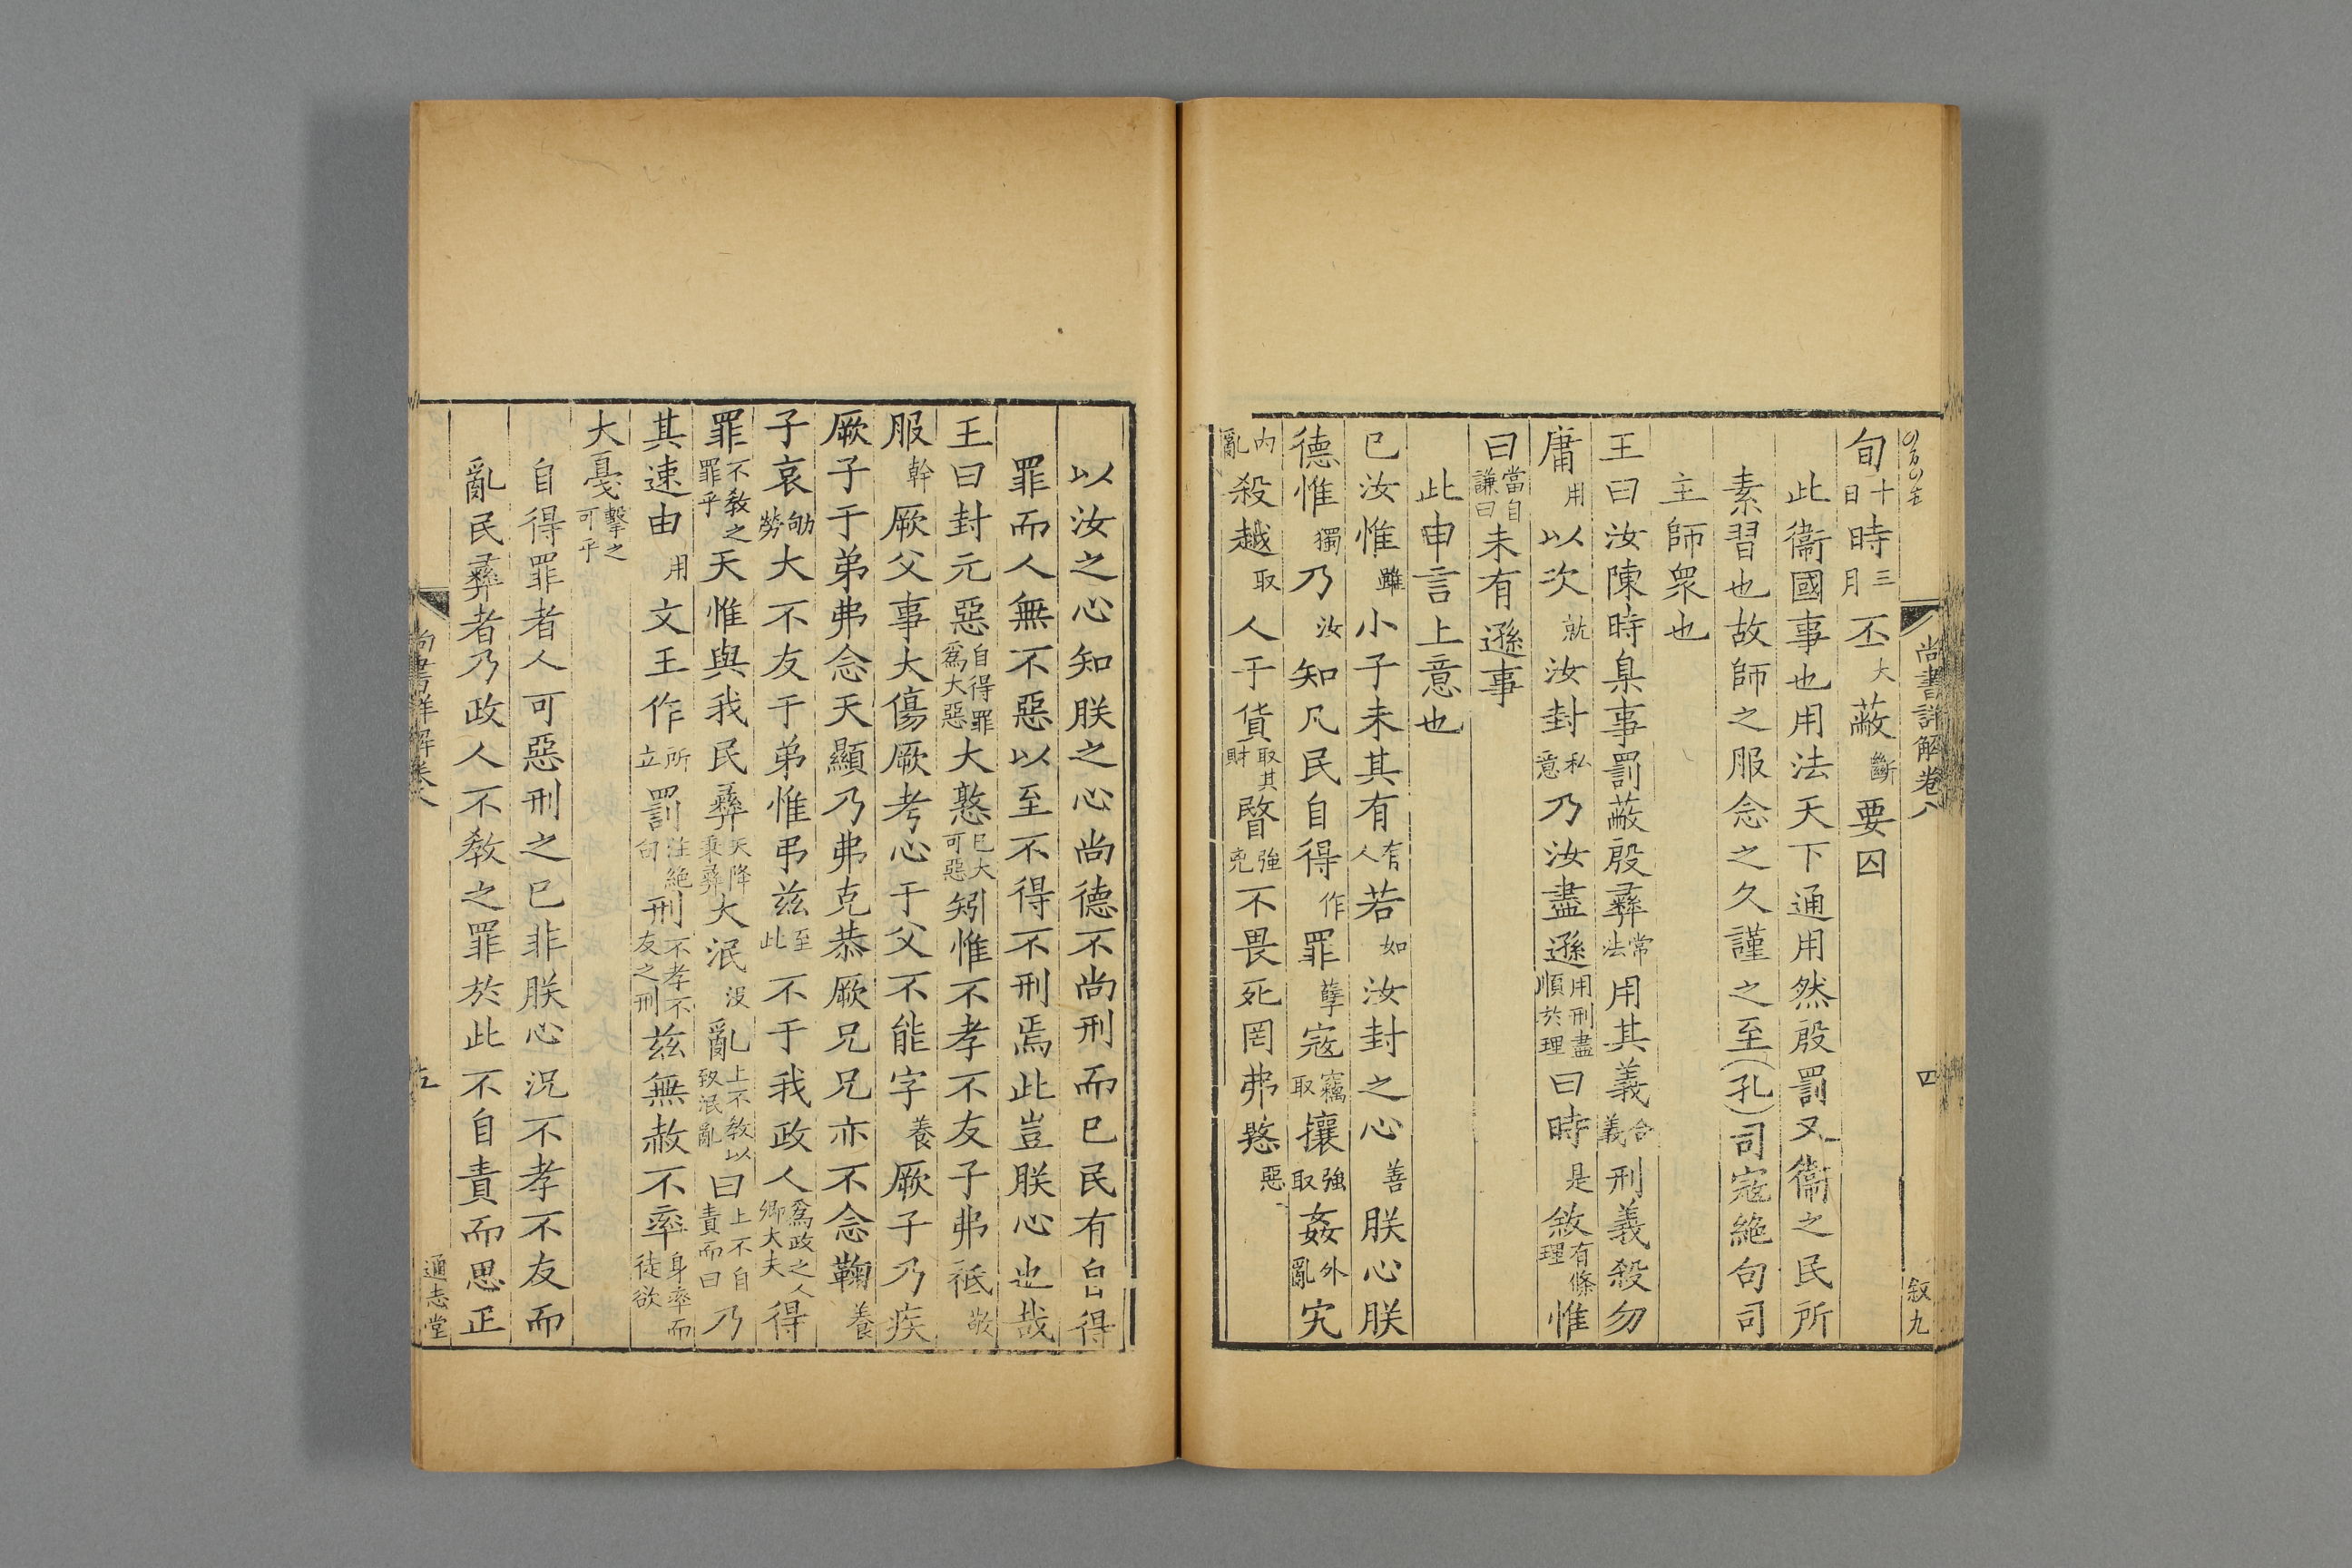 尚書詳解卷八 四 叙九
旬十日時三月丕大蔽斷要囚
此衞國事也用法天下通用然殷罰又衞之民所
素習也故師之服念之久謹之至(孔)司寇絶句司
主師衆也
王曰汝陳時臬事罰蔽殷彛常法用其義合義刑義殺勿
庸用以次就汝封私意乃汝盡遜用刑盡順於理曰時是敘有條理惟
曰當自謙曰未有遜事
此申言上意也
已汝惟雖小子未其有有人若如汝封之心善朕心朕
德惟獨乃汝知凡民自得作罪孽寇竊取攘強取姦外亂宄
內亂殺越取人于貨取其財暋強兇不畏死罔弗憝惡
以汝之心知朕之心尚德不尚刑而已民有自得
罪而人無不惡以至不得不刑焉此豈朕心也哉
王曰封元惡自得罪爲大惡大憝已大可惡矧惟不孝不友子弗祗敬
服幹厥父事大傷厥考心于父不能字養厥子乃疾
厥子于弟弗念天顯乃弗克恭厥兄兄亦不念鞠養
子哀劬勞大不友于弟惟弔兹至此不于我政人爲政之人卿大夫得
罪不敎之罪乎天惟與我民彛天降秉彛大泯沒亂上不敎以致泯亂曰上不自責而曰乃
其速由用文王作所立罰注絶句刑不孝不友之刑兹無赦不率身率而徒欲
大戛擊之可乎
自得罪者人可惡刑之已非朕心況不孝不友而
亂民彛者乃政人不敎之罪於此不自責而思正
尚書詳解卷八 五 通志堂